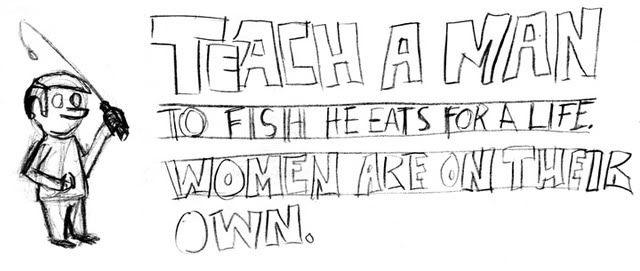 TEACH A MAN
TO FISH HE EATS FOR A LIFE.
WOMEN ARE ON THEIR
OWN.